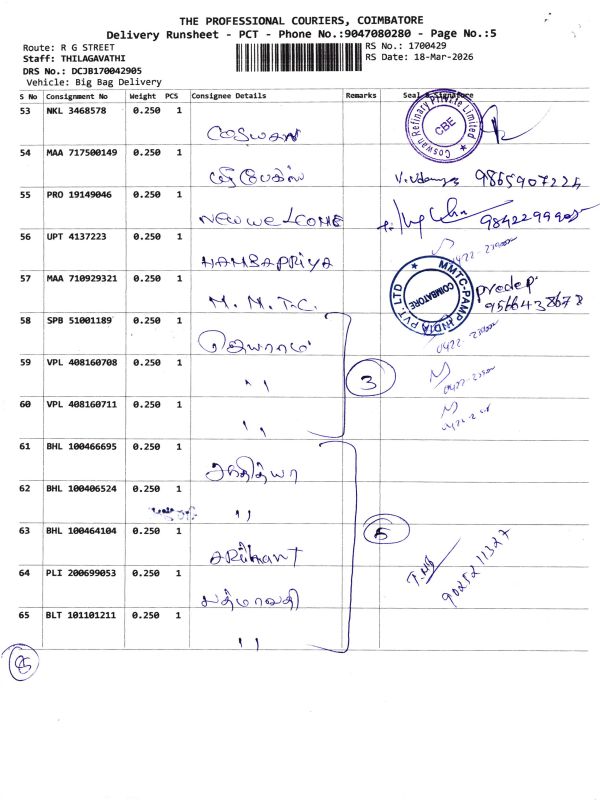 THE PROFESSIONAL COURIERS, COIMBATORE
Delivery Runsheet - PCT - Phone No.:9047080280 - Page No.:5
Route: R G STREET
RS No.: 1700429
Staff: THILAGAVATHI
RS Date: 18-Mar-2026
DRS No.: DCJB170042905
Vehicle: Big Bag Delivery
S No Consignment No Weight PCS Consignee Details Remarks Seal & Signature
53 NKL 3468578 0.250 1
Coswan Refinary Private Limited
CBE
54 MAA 717500149 0.250 1
9865907224
55 PRO 19149046 0.250 1 NEW WELCOME
56 UPT 4137223 0.250 1 NAMBAPRIYA
57 MAA 710929321 0.250 1 M. M. T. C.
MMTC-PAMP INDIA PVT. LTD
COIMBATORE
pradep.
9566438678
58 SPB 51001189 0.250 1 ஜெயராம்
59 VPL 408160708 0.250 1 " 3
60 VPL 408160711 0.250 1 "
61 BHL 100466695 0.250 1
62 BHL 100406524 0.250 1 "
63 BHL 100464104 0.250 1 ARihanT 5
9025211327
64 PLI 200699053 0.250 1 பத்மாவதி
65 BLT 101101211 0.250 1 "